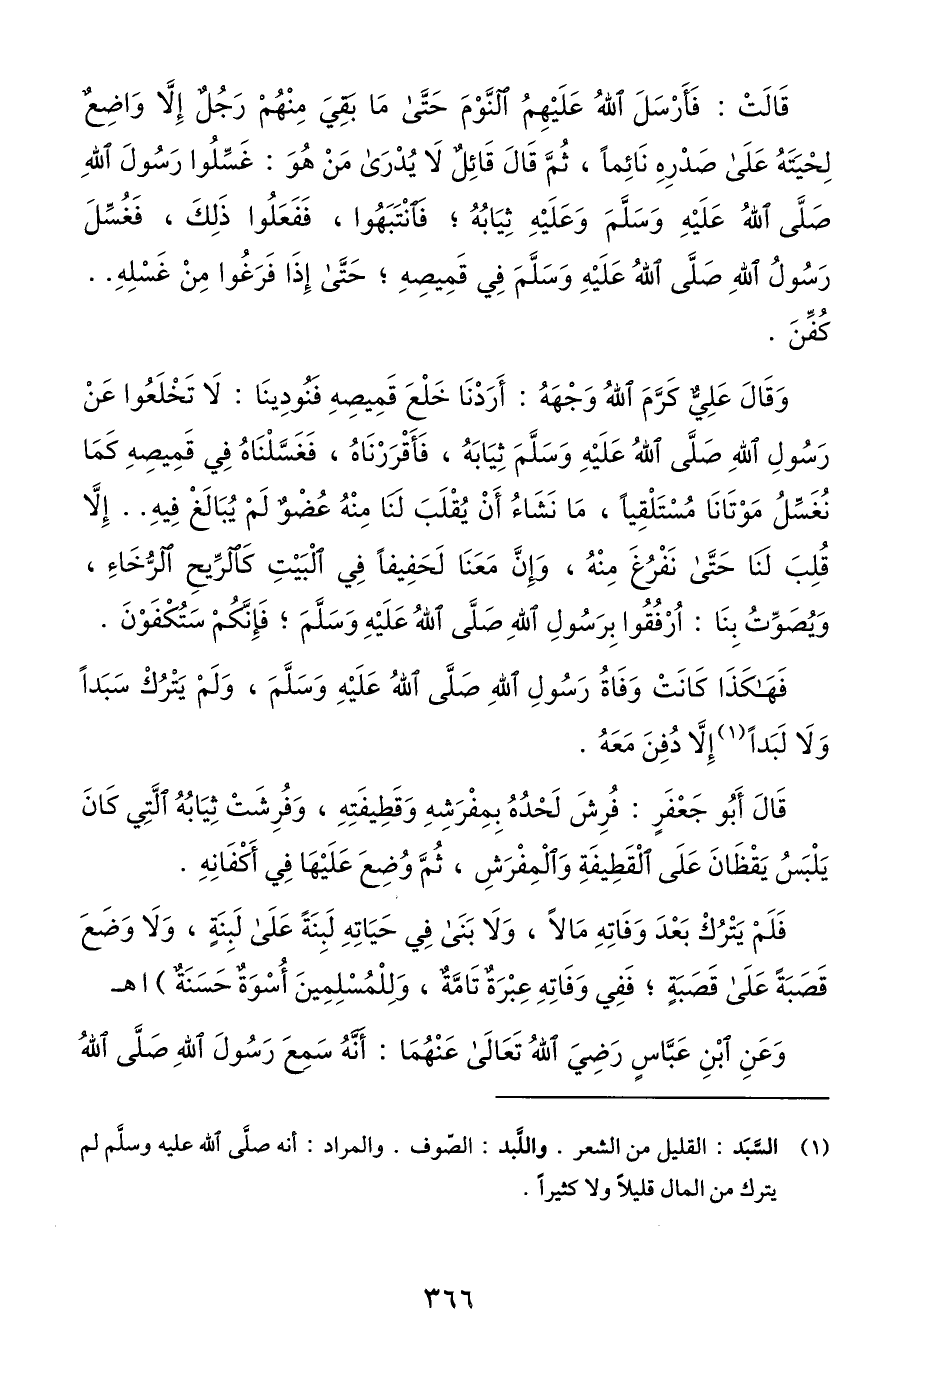 قَالَتْ : فَأَرْسَلَ ٱللهُ عَلَيْهِمُ ٱلنَّوْمَ حَتَّىٰ مَا بَقِيَ مِنْهُمْ رَجُلٌ إِلَّا وَاضِعٌ
لِحْيَتَهُ عَلَىٰ صَدْرِهِ نَائِماً ، ثُمَّ قَالَ قَائِلٌ لَا يُدْرَىٰ مَنْ هُوَ : غَسِّلُوا رَسُولَ ٱللهِ
صَلَّى ٱللهُ عَلَيْهِ وَسَلَّمَ وَعَلَيْهِ ثِيَابُهُ ؛ فَٱنْتَبَهُوا ، فَفَعَلُوا ذَلِكَ ، فَغُسِّلَ
رَسُولُ ٱللهِ صَلَّى ٱللهُ عَلَيْهِ وَسَلَّمَ فِي قَمِيصِهِ ؛ حَتَّىٰ إِذَا فَرَغُوا مِنْ غَسْلِهِ . .
كُفِّنَ .
وَقَالَ عَلِيٌّ كَرَّمَ ٱللهُ وَجْهَهُ : أَرَدْنَا خَلْعَ قَمِيصِهِ فَنُودِينَا : لَا تَخْلَعُوا عَنْ
رَسُولِ ٱللهِ صَلَّى ٱللهُ عَلَيْهِ وَسَلَّمَ ثِيَابَهُ ، فَأَقْرَرْنَاهُ ، فَغَسَّلْنَاهُ فِي قَمِيصِهِ كَمَا
نُغَسِّلُ مَوْتَانَا مُسْتَلْقِياً ، مَا نَشَاءُ أَنْ يُقْلَبَ لَنَا مِنْهُ عُضْوٌ لَمْ يُبَالَغْ فِيهِ . . إِلَّا
قُلِبَ لَنَا حَتَّىٰ نَفْرُغَ مِنْهُ ، وَإِنَّ مَعَنَا لَحَفِيفاً فِي ٱلْبَيْتِ كَٱلرِّيحِ ٱلرُّخَاءِ ،
وَيُصَوِّتُ بِنَا : أُرْفُقُوا بِرَسُولِ ٱللهِ صَلَّى ٱللهُ عَلَيْهِ وَسَلَّمَ ؛ فَإِنَّكُمْ سَتُكْفَوْنَ .
فَهَـٰكَذَا كَانَتْ وَفَاةُ رَسُولِ ٱللهِ صَلَّى ٱللهُ عَلَيْهِ وَسَلَّمَ ، وَلَمْ يَتْرُكْ سَبَداً
وَلَا لَبَداً (١) إِلَّا دُفِنَ مَعَهُ .
قَالَ أَبُو جَعْفَرٍ : فُرِشَ لَحْدُهُ بِمِفْرَشِهِ وَقَطِيفَتِهِ ، وَفُرِشَتْ ثِيَابُهُ ٱلَّتِي كَانَ
يَلْبَسُ يَقْظَانَ عَلَى ٱلْقَطِيفَةِ وَٱلْمِفْرَشِ ، ثُمَّ وُضِعَ عَلَيْهَا فِي أَكْفَانِهِ .
فَلَمْ يَتْرُكْ بَعْدَ وَفَاتِهِ مَالاً ، وَلَا بَنَىٰ فِي حَيَاتِهِ لَبِنَةً عَلَىٰ لَبِنَةٍ ، وَلَا وَضَعَ
قَصَبَةً عَلَىٰ قَصَبَةٍ ؛ فَفِي وَفَاتِهِ عِبْرَةٌ تَامَّةٌ ، وَلِلْمُسْلِمِينَ أُسْوَةٌ حَسَنَةٌ ) اهـ
وَعَنِ ٱبْنِ عَبَّاسٍ رَضِيَ ٱللهُ تَعَالَىٰ عَنْهُمَا : أَنَّهُ سَمِعَ رَسُولَ ٱللهِ صَلَّى ٱللهُ
(١) السَّبَد : القليل من الشعر . واللَّبد : الصّوف . والمراد : أنه صلَّى ٱلله عليه وسلَّم لم
يترك من المال قليلاً ولا كثيراً .
٣٦٦